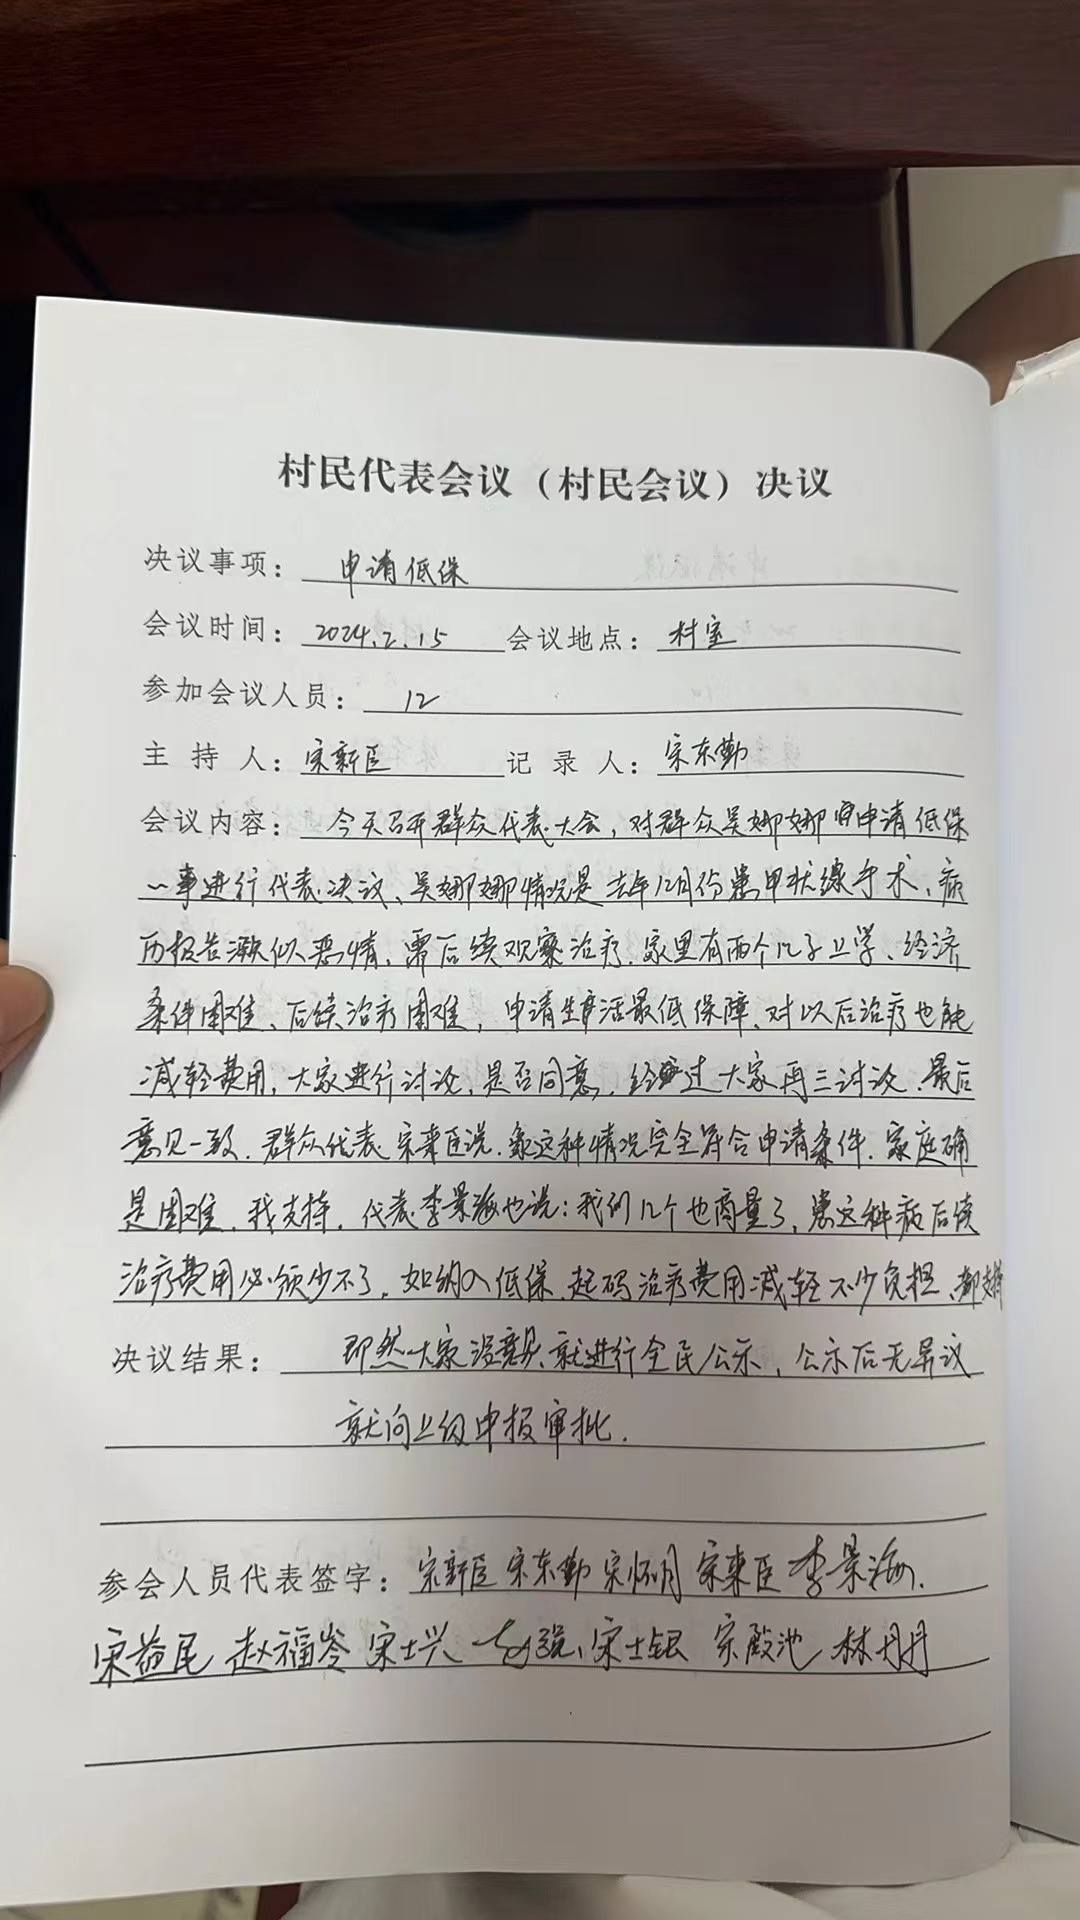 村民代表会议（村民会议）决议
决议事项： 申请低保
会议时间： 2024.2.15 会议地点： 村室
参加会议人员： 12
主 持 人： 宋新臣 记 录 人： 宋东勤
会议内容： 今天召开群众代表大会，对群众吴娜娜申请低保
一事进行代表决议、吴娜娜情况是去年12月份患甲状缐手术、病
历报告濒似恶情，需后续观察治疗．家里有两个儿子上学、经济
条件困难、后续治疗困难，申请生活最低保障、对以后治疗也能
减轻费用，大家进行讨论，是否同意，经过大家再三讨议、最后
意见一致．群众代表宋来臣说．这种情况完全符合申请条件．家庭确
是困难．我支持．代表李景海也说：我们几个也商量了，患这种病后续
治疗费用必须少不了．如纳入低保．起码治疗费用减轻不少负担、都支持
决议结果： 即然大家没意见就进行全民公示，公示后无异议
就向上级申报审批．
参会人员代表签字： 宋新臣 宋东勤 宋怀月 宋来臣 李景海．
宋益尾 赵福岑 宋士兴 宋士银 宋殿池 林丹丹